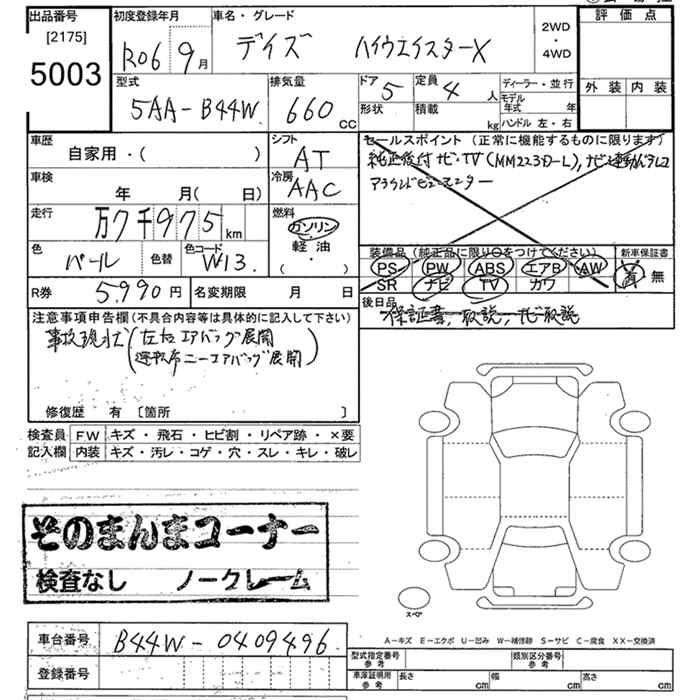 出品番号 初度登録年月 車名・グレード 評価点
[2175]
5003
R06 9月 デイズ ハイウェイスターX 2WD・4WD
外装 内装
型式 排気量 ドア 定員 ディーラー・並行
5AA-B44W 660cc 5 4人 モデル年式 年
形状 積載 kg ハンドル 左・右
車歴 シフト セールスポイント(正常に機能するものに限ります)
自家用・( ) AT 純正後付ナビ・TV(MM223D-L), ナビ連動ドラレコ
車検 冷房 アラウンドビューモニター
年 月( 日) AAC
走行 燃料
万7千975km ガソリン
軽油
( ・ )
色 色替 色コード 装備品(純正品に限り○をつけてください) 新車保証書
パール W13. PS PW ABS エアB AW 有・無
SR ナビ TV カワ
R券 5,990円 名変期限 月 日 後日品
保証書, 取説, ナビ取説
注意事項申告欄(不具合内容等は具体的に記入して下さい)
事故現状(左右エアバッグ展開
運転席ニーエアバッグ展開)
修復歴 有 [箇所 ]
検査員 FW キズ・飛石・ヒビ割・リペア跡・×要
記入欄 内装 キズ・汚レ・コゲ・穴・スレ・キレ・破レ
そのまんまコーナー
検査なし ノークレーム
スペア
A-キズ E-エクボ U-凹み W-補修跡 S-サビ C-腐食 XX-交換済
車台番号 B44W-0409496 型式指定番号 参考 類別区分番号 参考
登録番号 車庫証明用 参考 長さ cm 幅 cm 高さ cm